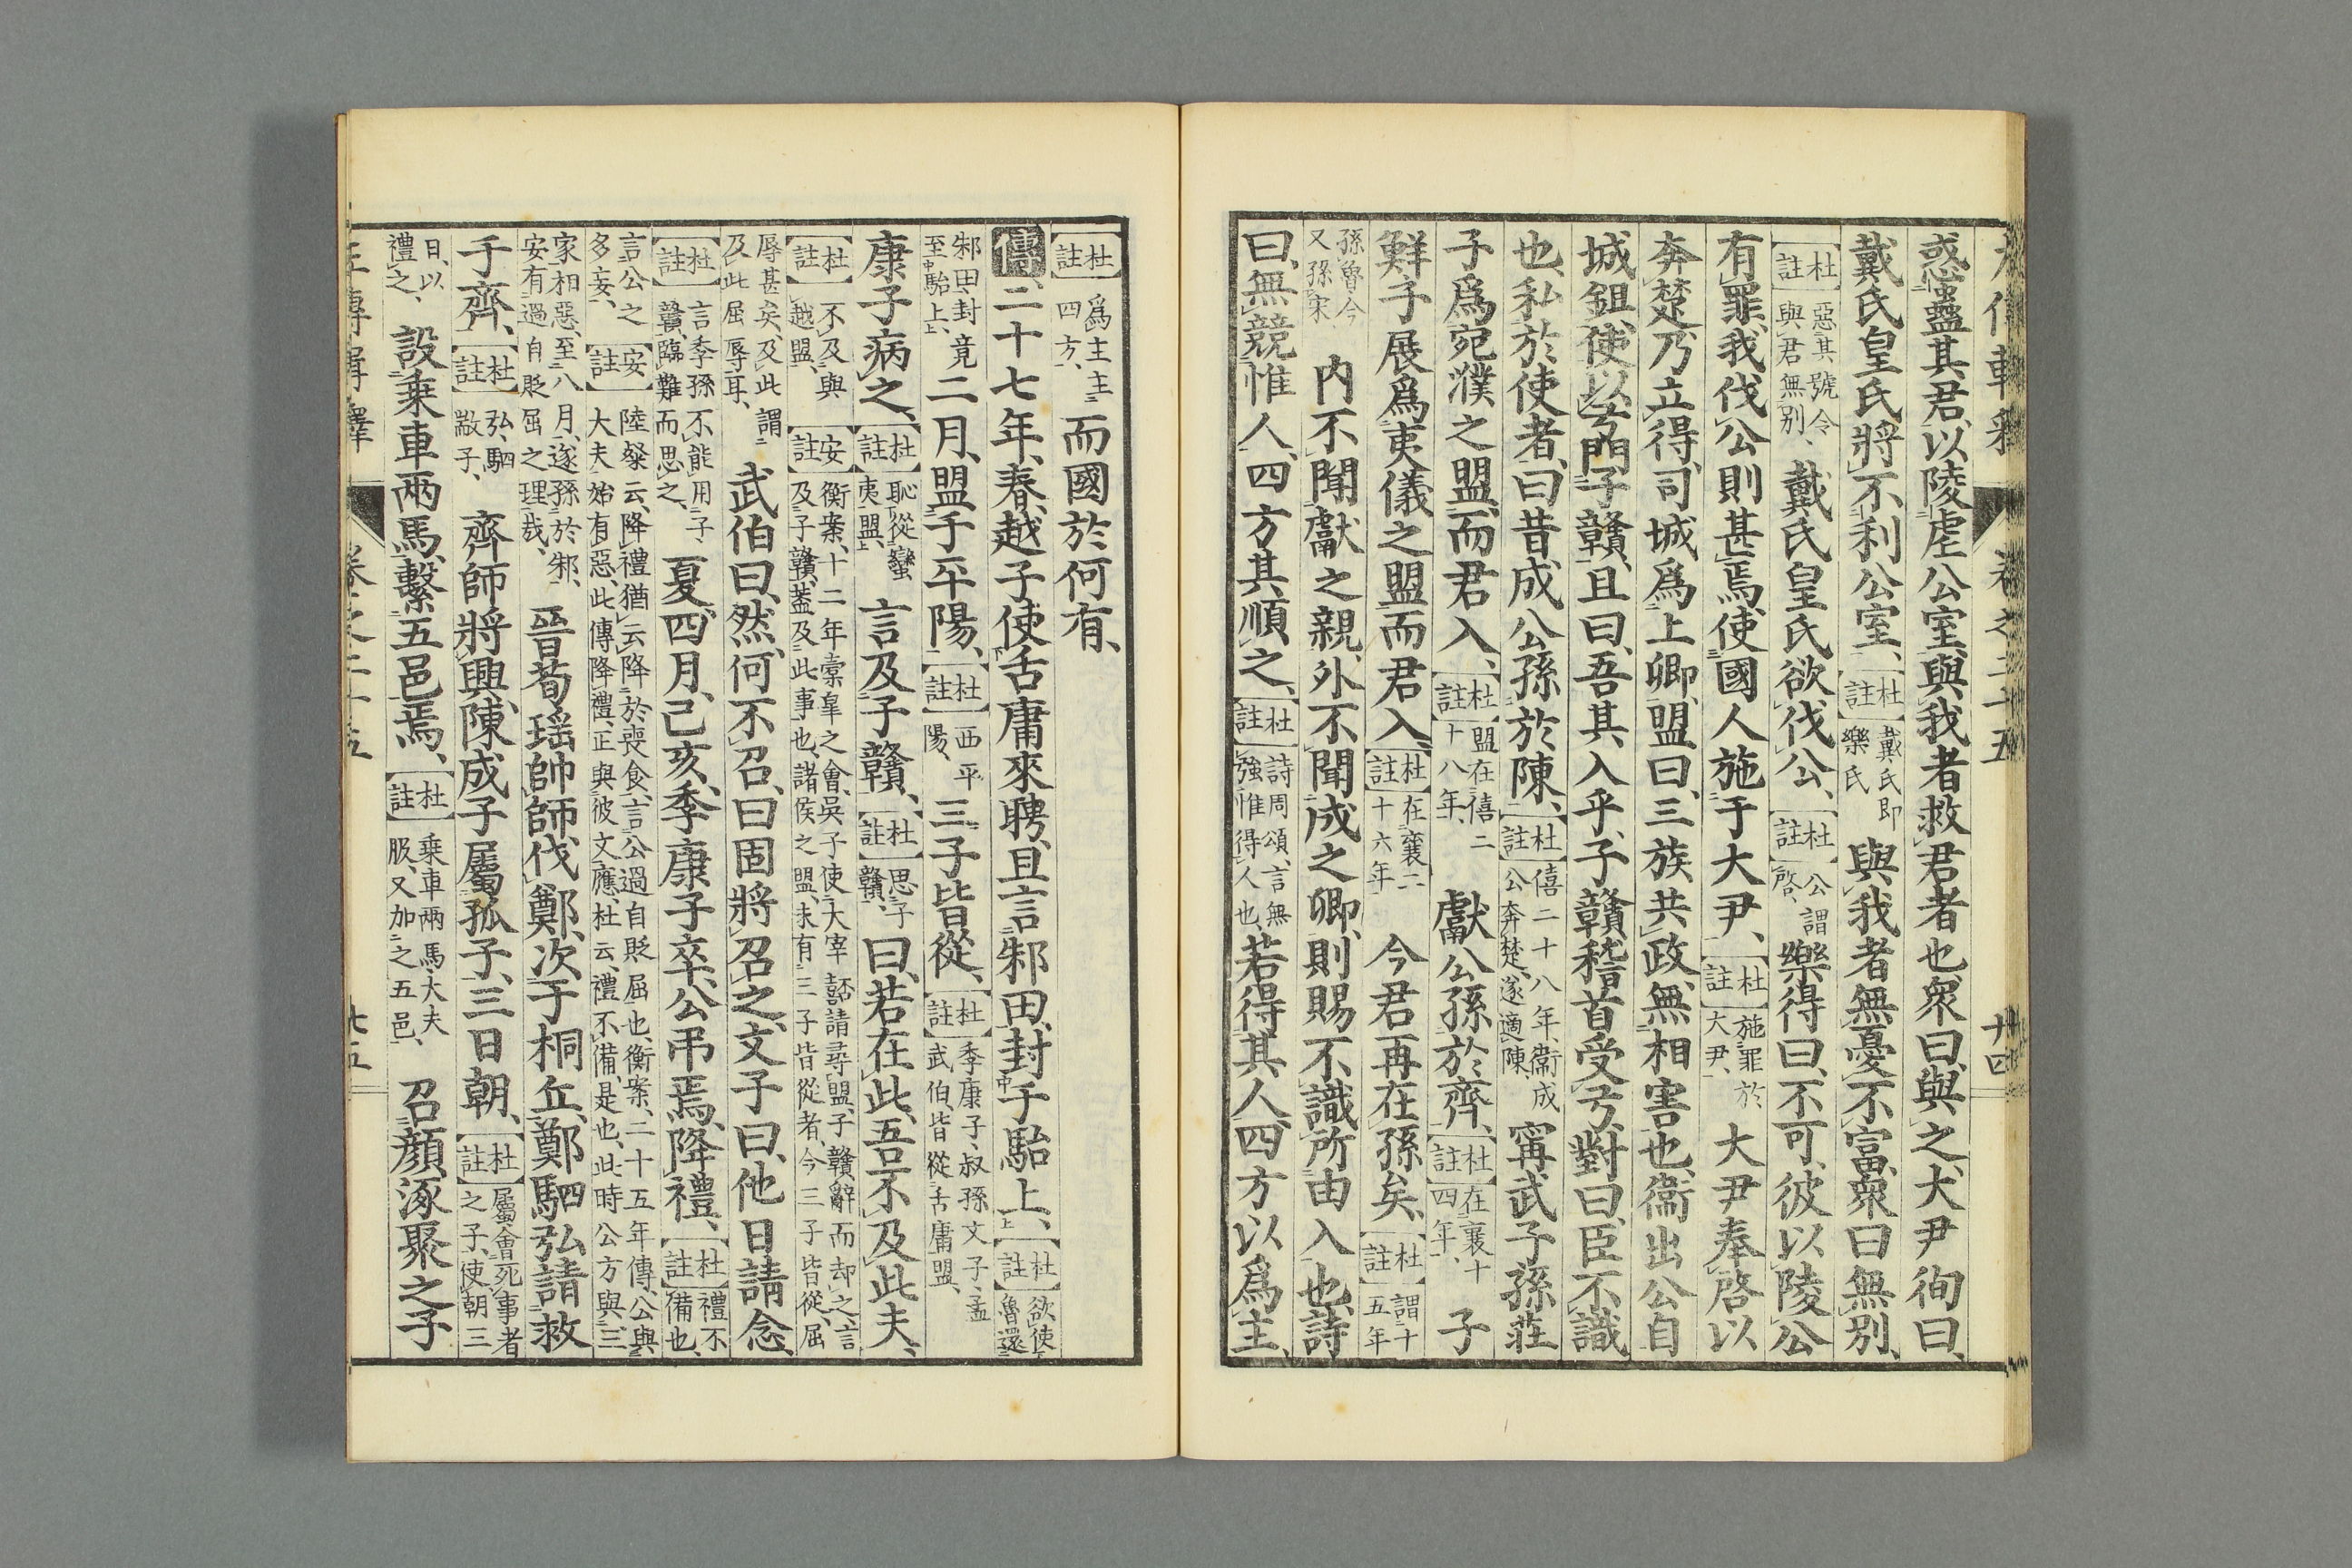 左傳輯釋 卷之二十五 十四
惑蠱其君、以陵虐公室、與我者救君者也、衆曰、與之、大尹徇曰、
戴氏皇氏將不利公室、【杜註】戴氏即樂氏 與我者無憂不富、衆曰、無別、
【杜註】惡其號令與君無別、 戴氏皇氏欲伐公、【杜註】公謂啓、樂得曰、不可、彼以陵公
有罪、我伐公則甚焉、使國人施于大尹、【杜註】施罪於大尹、 大尹奉啓以
奔楚、乃立得、司城爲上卿、盟曰、三族共政、無相害也、衞出公自
城鉏使以弓問子贛、且曰、吾其入乎、子贛稽首受弓、對曰、臣不識
也、私於使者曰、昔成公孫於陳、【杜註】僖二十八年、衞成公奔楚、遂適陳、 甯武子孫莊
子爲宛濮之盟、而君入、【杜註】盟在僖二十八年、 獻公孫於齊、【杜註】在襄十四年、 子
鮮子展爲夷儀之盟、而君入、【杜註】在襄二十六年 今君再在孫矣、【杜註】謂十五年
孫魯、今又孫宋、 内不聞獻之親、外不聞成之卿、則賜不識所由入也、詩
曰、無競惟人、四方其順之、【杜註】詩周頌、言無強惟得人也、若得其人、四方以爲主、
【杜註】爲主主四方、 而國於何有、
傳 二十七年、春、越子使舌庸來聘、且言邾田、封于駘上、【杜註】欲使魯還
邾田、封竟至駘上、 二月、盟于平陽、【杜註】西平陽、 三子皆從、【杜註】季康子、叔孫文子、孟武伯、皆從舌庸盟、
康子病之、【杜註】恥從蠻夷盟、 言及子贛、【杜註】思子贛、 曰、若在此、吾不及此夫、
【杜註】不及與越盟、【安註】衡案、十二年槖皐之會、吳子使大宰嚭請尋盟、子贛辭而却之、言及子贛、蓋及此事也、諸侯之盟、未有三子皆從者、今三子皆從、屈
辱甚矣、及此謂及此屈辱耳、 武伯曰、然、何不召、曰固將召之、文子曰、他日請念、
【杜註】言季孫不能用子贛、臨難而思之、 夏四月、己亥、季康子卒、公弔焉、降禮、【杜註】禮不備也、
言公之多妄、【安註】陸粲云、降禮猶云降於喪食、言公過自貶屈也、衡案、二十五年傳、公與大夫始有惡、此傳降禮、正與彼文應、杜云、禮不備、是也、此時公方與三
家相惡、至八月、遂孫於邾、安有過自貶屈之理哉、 晉荀瑤帥師伐鄭、次于桐丘、鄭駟弘請救
于齊、【杜註】弘、駟歂子、 齊師將興、陳成子屬孤子、三日朝、【杜註】屬會死事者之子、使朝三
日、以禮之、 設乘車兩馬、繫五邑焉、【杜註】乘車兩馬、大夫服、又加之五邑、 召顔涿聚之子